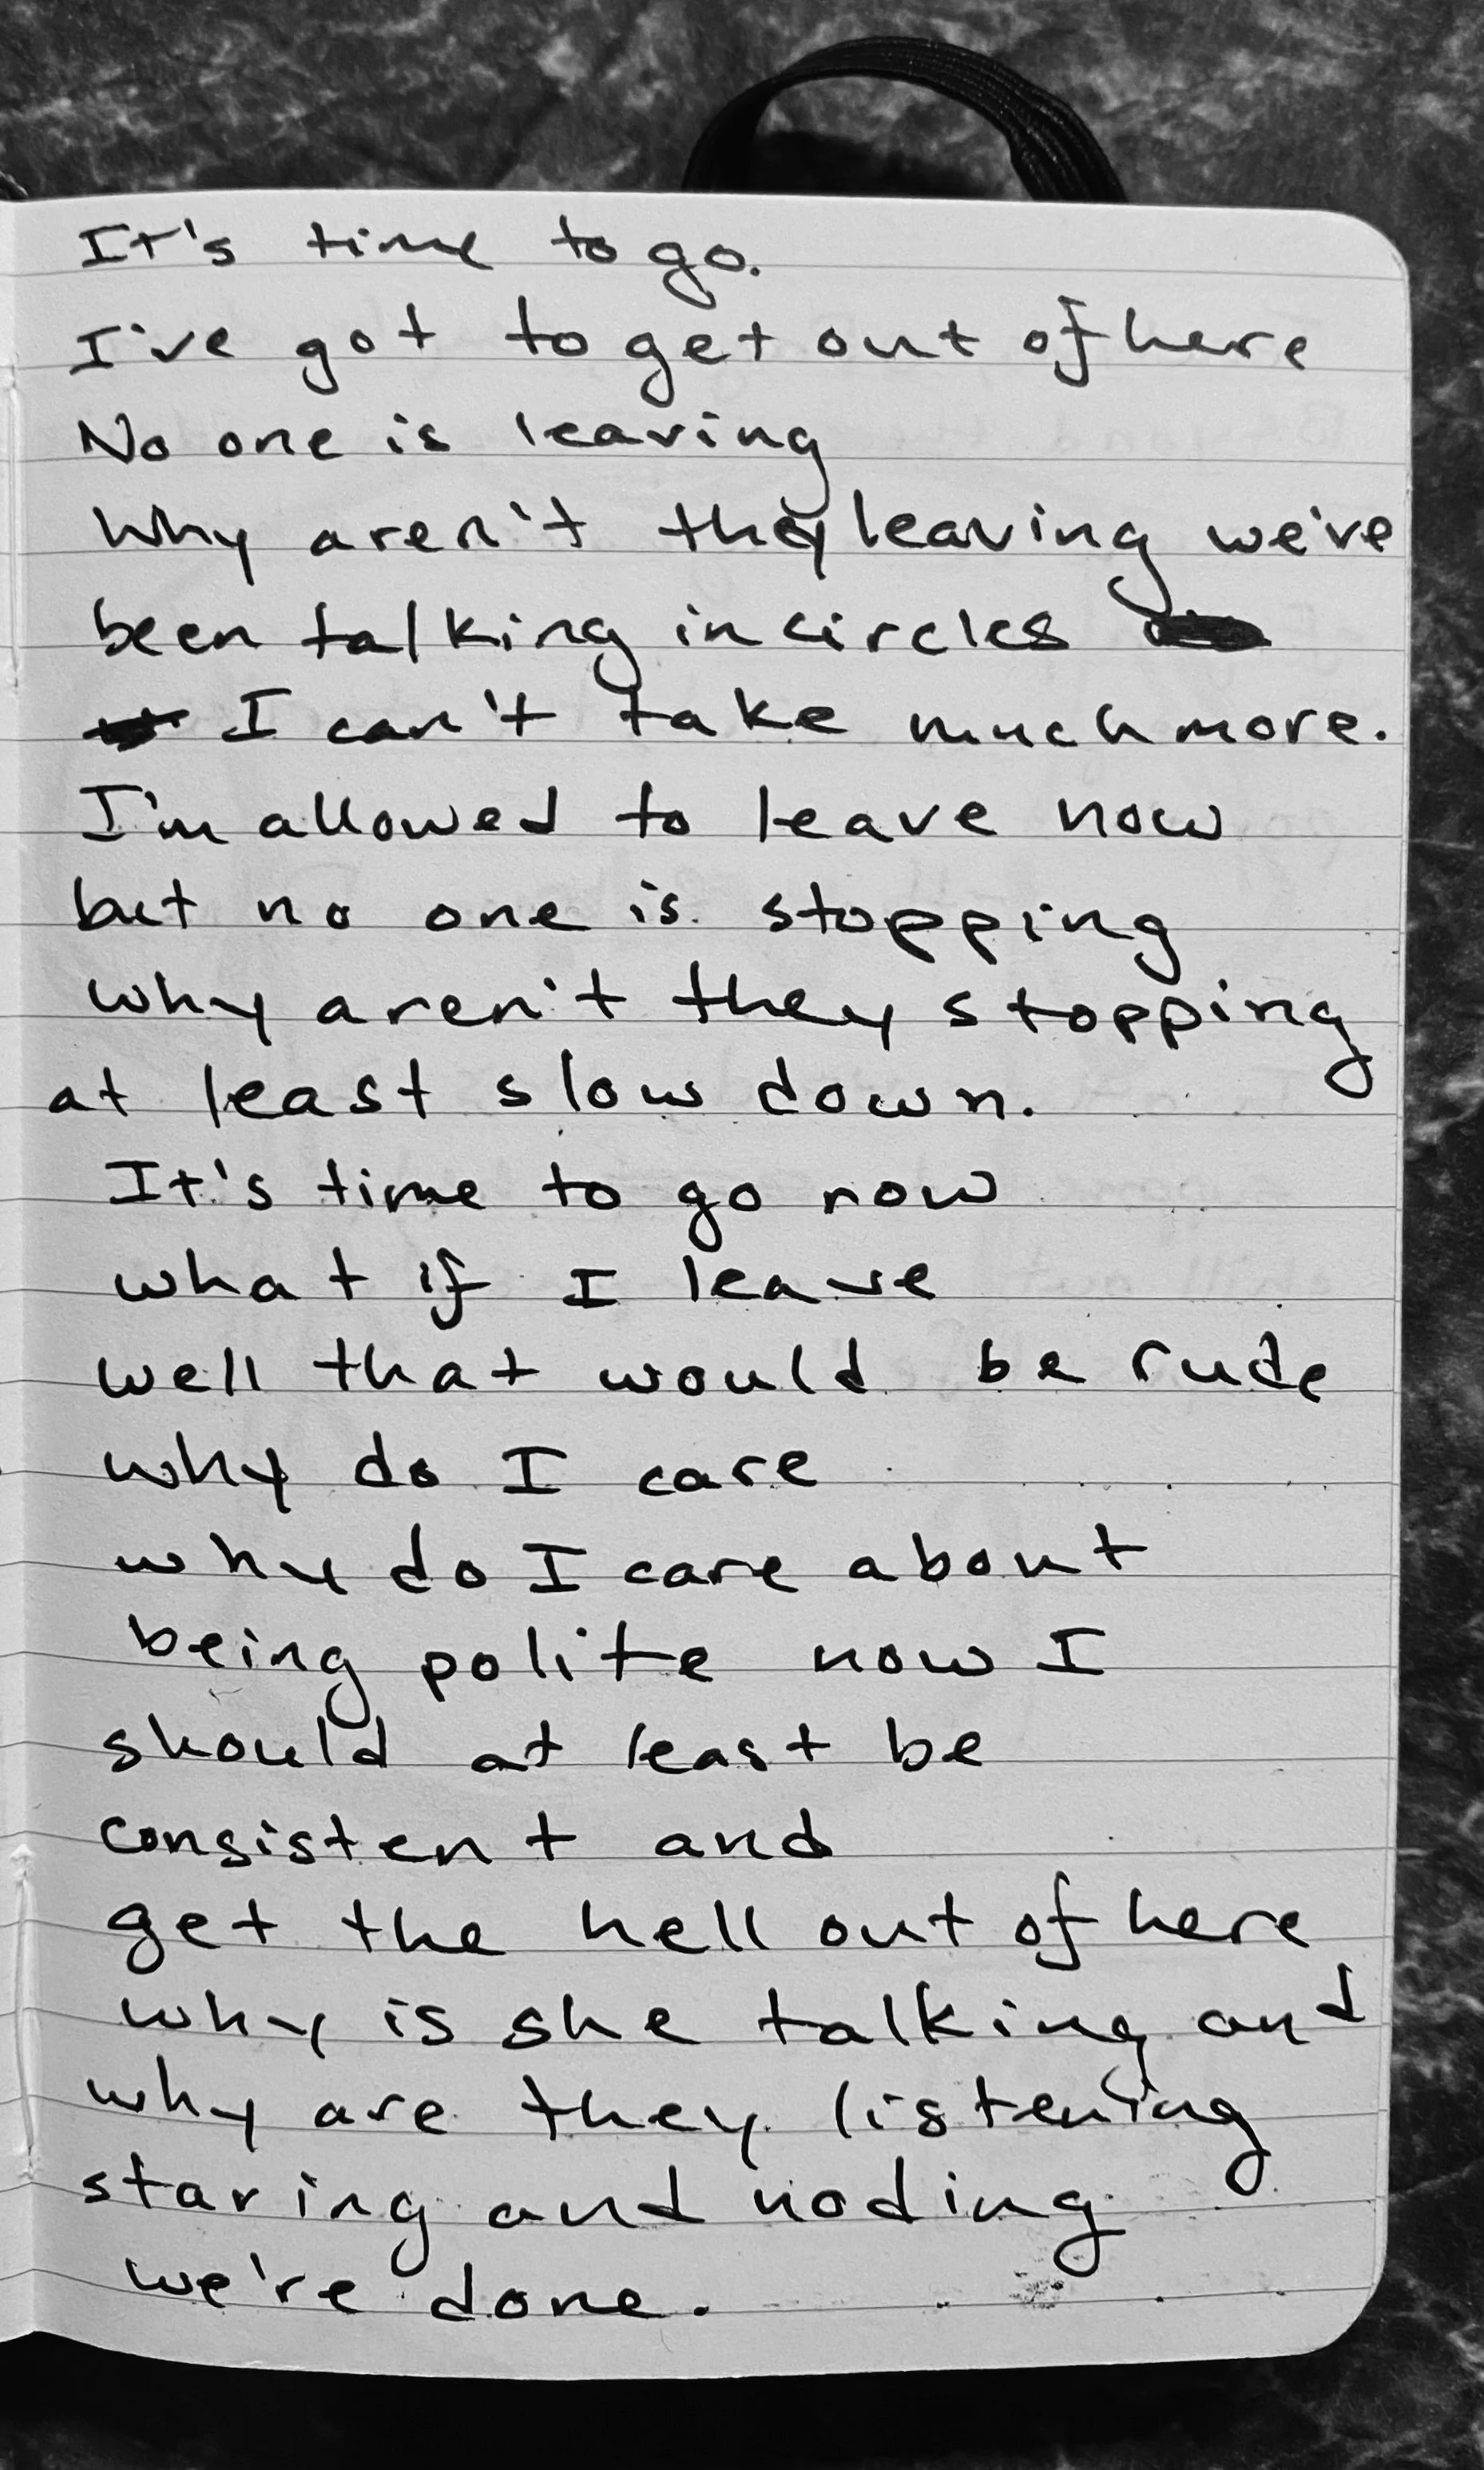 It's time to go.
I've got to get out of here
No one is leaving
Why aren't they leaving we've
been talking in circles
I can't take much more.
I'm allowed to leave now
but no one is stopping
why aren't they stopping
at least slow down.
It's time to go now
what if I leave
well that would be rude
why do I care
why do I care about
being polite now I
should at least be
consistent and
get the hell out of here
why is she talking and
why are they listening
staring and noding
we're done.